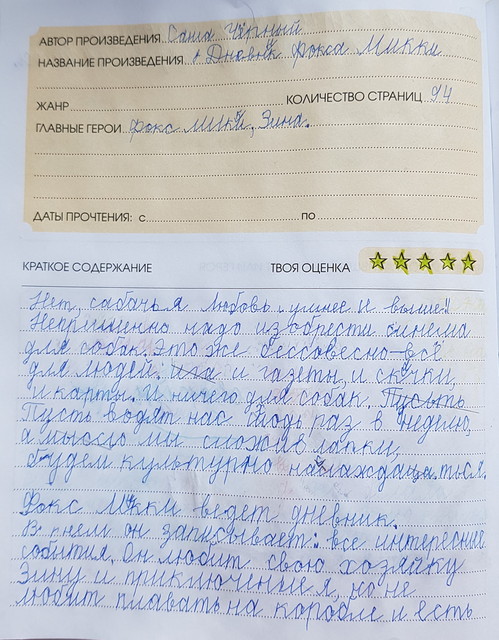 АВТОР ПРОИЗВЕДЕНИЯ Саша Чёрный
НАЗВАНИЕ ПРОИЗВЕДЕНИЯ «Дневник Фокса Микки
ЖАНР КОЛИЧЕСТВО СТРАНИЦ 94
ГЛАВНЫЕ ГЕРОИ Фокс Микки, Зина.
ДАТЫ ПРОЧТЕНИЯ: с по
КРАТКОЕ СОДЕРЖАНИЕ ТВОЯ ОЦЕНКА
Нет, сабачья любовь умнее и выше!
Непришенно надо изобрести синема
для собак. Это же бессовесно-всё
для людей: и газеты, и скачки,
и карты. И ничего для собак. Пусыть
Пусть водят нас хоть раз в неделю,
а мы сложив лапки,
будем культурно наслаждаться.
Фокс Микки ведет дневник.
В нем он записывает: все интересные
события. Он любит свою хозяйку
Зину и приключения, но не
любит плавать на корабле и есть